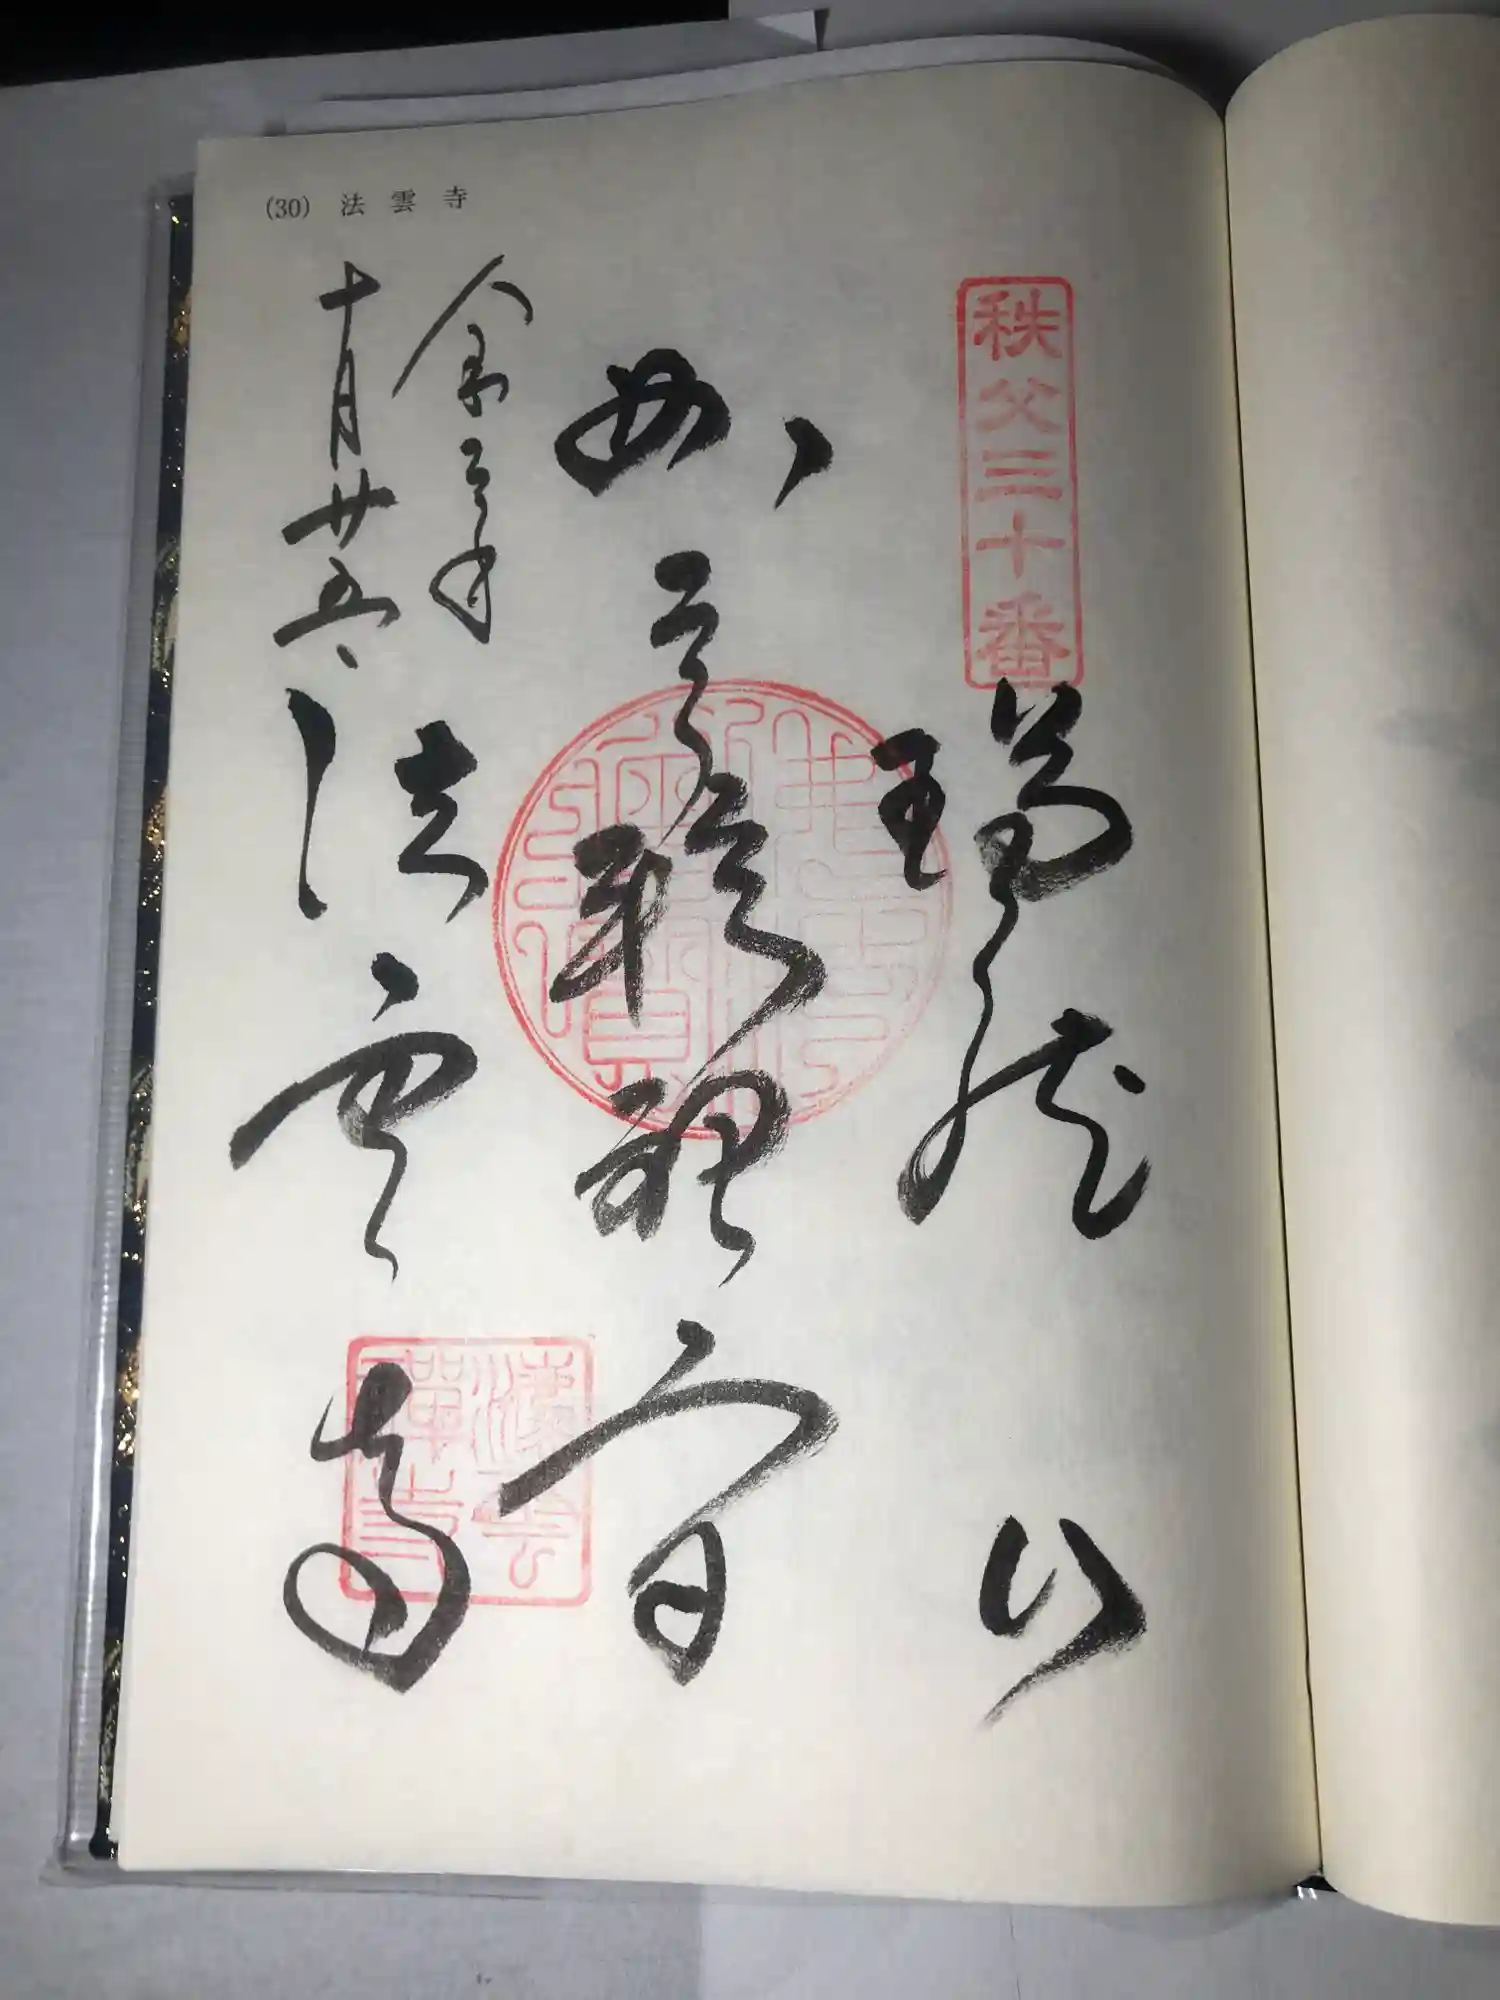 (30) 法雲寺
秩父三十番
瑞龍山
如意輪観音
令和三年
十月廿五日
法雲寺